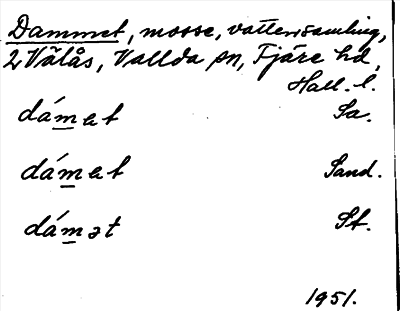 Dammet, mosse, vattensamling,
2 Välås, Vallda sn, Fjäre hd,
Hall. l.
dámet Sa.
dámet Sand.
dámət St.
1951.